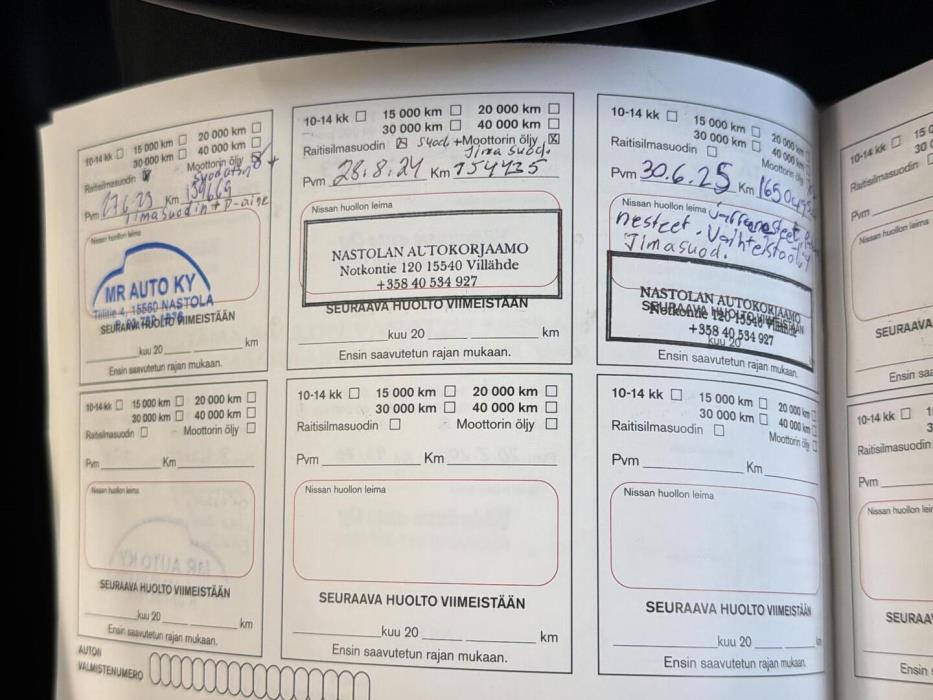 10-14 kk 15 000 km 20 000 km
30 000 km 40 000 km
Raitisilmasuodin Moottorin öljy +
suodatin
Pvm Km 139669
Ilmasuodin +
Nissan huollon leima
MR AUTO KY
Tiilitie 4, 15560 NASTOLA
SEURAAVA HUOLTO VIIMEISTÄÄN
kuu 20 km
Ensin saavutetun rajan mukaan.
10-14 kk 15 000 km 20 000 km
30 000 km 40 000 km
Raitisilmasuodin Suod. + Moottorin öljy
Ilmasuod.
Pvm 28.8.24 Km 154425
Nissan huollon leima
NASTOLAN AUTOKORJAAMO
Notkontie 120 15540 Villähde
+358 40 534 927
SEURAAVA HUOLTO VIIMEISTÄÄN
kuu 20 km
Ensin saavutetun rajan mukaan.
10-14 kk 15 000 km 20 000 km
30 000 km 40 000 km
Raitisilmasuodin Moottorin
Pvm 30.6.25 Km
Nissan huollon leima Jarrunesteet
nesteet. Vaihteistoöljy
Ilmasuod.
NASTOLAN AUTOKORJAAMO
SEURAAVA HUOLTO VIIMEISTÄÄN
Notkontie 120 15540 Villähde
+358 40 534 927
kuu 20
Ensin saavutetun rajan mukaan.
10-14 kk 15 000 km 20 000 km
30 000 km 40 000 km
Raitisilmasuodin Moottorin öljy
Pvm Km
Nissan huollon leima
SEURAAVA HUOLTO VIIMEISTÄÄN
kuu 20 km
Ensin saavutetun rajan mukaan.
10-14 kk 15 000 km 20 000 km
30 000 km 40 000 km
Raitisilmasuodin Moottorin öljy
Pvm Km
Nissan huollon leima
SEURAAVA HUOLTO VIIMEISTÄÄN
kuu 20 km
Ensin saavutetun rajan mukaan.
10-14 kk 15 000 km 20 000 km
30 000 km 40 000 km
Raitisilmasuodin Moottorin öljy
Pvm Km
Nissan huollon leima
SEURAAVA HUOLTO VIIMEISTÄÄN
kuu 20
Ensin saavutetun rajan mukaan.
AUTON
VALMISTENUMERO
10-14 kk
Raitisilmasuodin
Pvm
Nissan huollon leima
SEURAAVA
Ensin
10-14 kk
Raitisilmasuodin
Pvm
Nissan huollon
Ensin